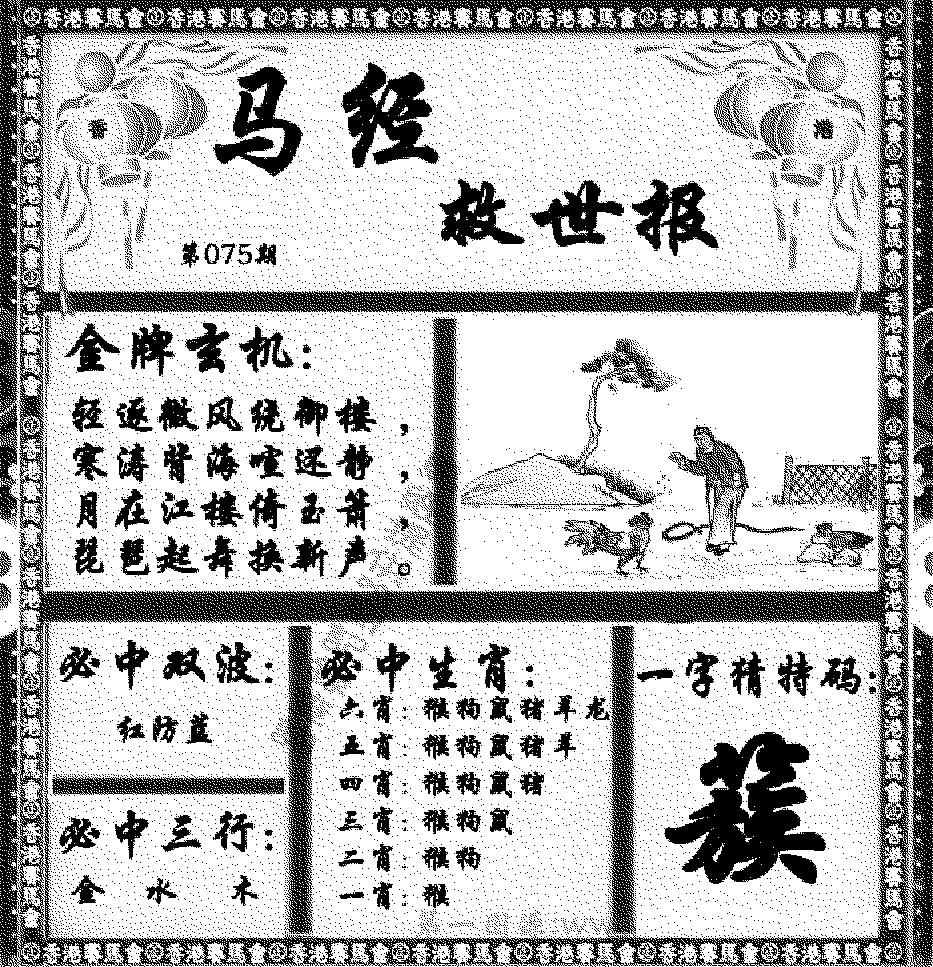 香港賽馬會 香港賽馬會 香港賽馬會 香港賽馬會 香港賽馬會 香港賽馬會 香港賽馬會
香
港
马经
救世报
第075期
金牌玄机:
轻逐微风绕御楼,
寒涛背海喧还静,
月在江楼倚玉箫,
琵琶起舞换新声。
必中双波:
红防蓝
必中三行:
金 水 木
必中生肖:
六肖: 猴狗鼠猪羊龙
五肖: 猴狗鼠猪羊
四肖: 猴狗鼠猪
三肖: 猴狗鼠
二肖: 猴狗
一肖: 猴
一字猜特码:
簇
香港賽馬會 香港賽馬會 香港賽馬會 香港賽馬會 香港賽馬會 香港賽馬會 香港賽馬會